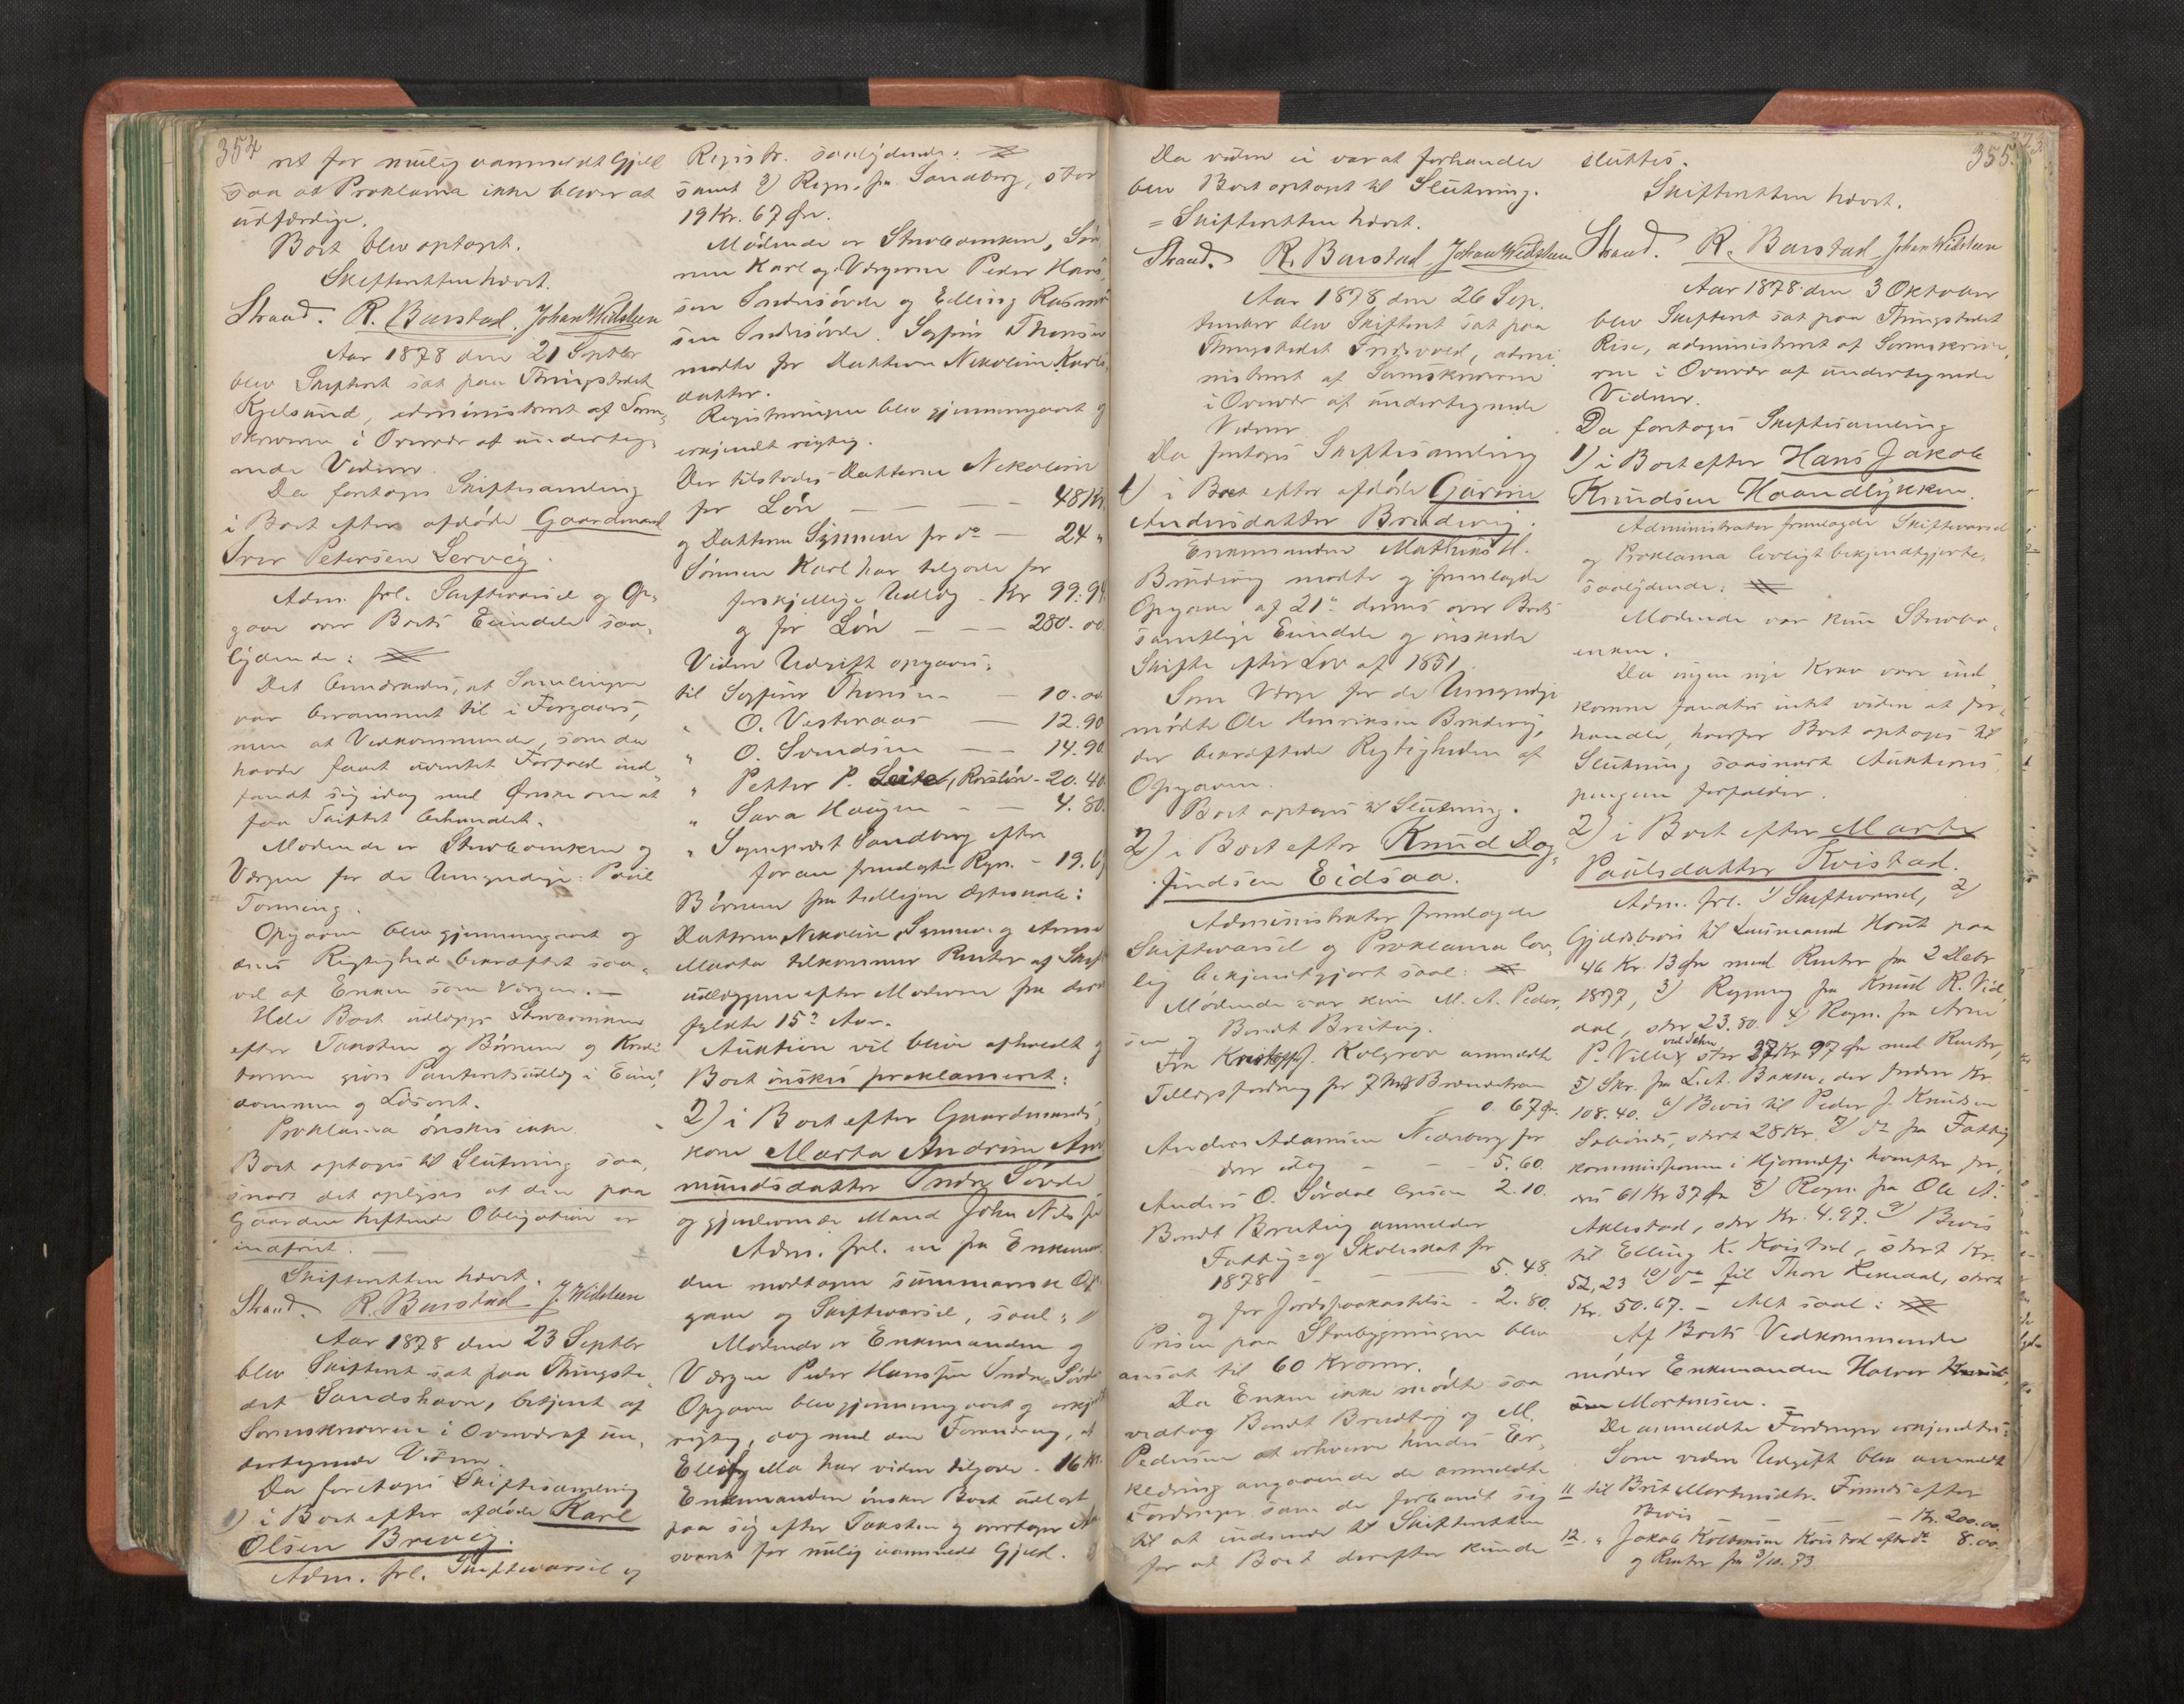 354
ret for mulig uanmeldt Gjeld
saa at Proklama ikke bliver at
udfærdige.
Boet blev optaget.
Skifteretten hævet.
Strand. R. Barstad. Johan Widsteen
Aar 1878 den 21 Septbr
blev Skifteret sat paa Thingstedet
Kjelsund, administreret af Soren-
skriveren i Overvær af underteg-
nede Vidner.
Da foretoges Skiftesamling
i Boet efter afdøde Gaardmand
Iver Petersen Lervig.
Adm. frl. Skiftevarsel og Op-
gave over Boets Eiendele saa-
lydende:
Det bemærkedes, at Samlingen
var berammet til i Forgaars,
men at Vedkommende, som da
havde faaet uventet Forfald ind-
fandt sig idag med Ønske om at
faa Skiftet behandlet.
Mødende er Stervboenken og
Værgen for de Umyndige: Paul
Tonning.
Opgaven blev gjennemgaaet og
dens Rigtighed bekræftet saa-
vel af Enken som Værgen. —
Hele Boet udlægges Stervboenken
efter Taksten og Børnene og Kredi-
torerne gives Panteretsudlæg i Eien-
dommen og Løsøret.
Proklama ønskes ikke.
Boet optoges til Slutning saa-
snart det oplyses at den paa
Gaarden heftende Obligation er
indfriet. —
Skifteretten hævet.
Strand. R. Barstad J. Widsteen
Aar 1878 den 23 Septbr
blev Skifteret sat paa Thingste-
det Sandshavn, betjent af
Sorenskriveren i Overvær af un-
dertegnede Vidner.
Da foretoges Skiftesamling
1) i Boet efter afdøde Karl
Olsen Brevig.
Adm. frl. Skiftevarsel og
Registr. saalydende:
samt 3) Regn. fra Sandberg, stor
19 Kr. 67 Øre.
Mødende er Stervboenken, Søn-
nen Karl og Værgerne Peder Han-
sen Indresøvde og Elling Rasmus-
sen Indresøvde. Sogfus Thorsen
mødte for Datteren Nekoline Karls-
datter.
Registreringen blev gjennemgaaet og
erkjendt rigtig.
Der tilstodes Datteren Nekoline
for Løn — — — 48 Kr.
og Datteren Synneve for do — 24 "
Sønnen Karl har tilgode for
forskjellige Udlæg - Kr 99.94
og for Løn — — — 280.00
Videre Udgift opgaves:
til Sogfus Thorsen — 10.00
" O. Vesteraas — 12.90
" O. Svendsen — — 14.90
" Petter P. Leite, Rorsløn - 20.40
" Sara Haugen — — 4.80
" Sogneprest Sandberg efter
foran fremlagte Regn. - 19.67
Børnene fra tidligere Ægteskab:
Døttrene Nekoline, Synneve og Anne
Marta tilkommer Renter af Skifte-
udlæggene efter Moderen fra deres
fyldte 15de Aar.
Auktion vil blive afholdt og
Boet ønskes proklameret.
2) i Boet efter Gaardmands-
kone Marta Andrine An-
mundsdatter Indre Søvde
og gjenlevende Mand John Nils-
Adm. frl. en fra Enkeman-
den modtagen summarisk Op-
gave og Skiftevarsel, saal:
Mødende er Enkemanden og
Værgen Peder Hanssen Indre Søvde
Opgaven blev gjennemgaaet og erkjendt
rigtig, dog med den Forandring, at
Elling Mo har videre tilgode - 16 Kr.
Enkemanden ønsker Boet udlagt
paa sig efter Taksten og overtager An-
svaret for mulig uanmeldt Gjeld.
Da videre ei var at forhandle
blev Boet optaget til Slutning.
= Skifteretten hævet.
Strand. R. Barstad. Johan Widsteen
Aar 1878 den 26 Sep-
tember blev Skifteret sat paa
Thingstedet Indsvold, admi-
nistreret af Sorenskriveren
i Overvær af undertegnede
Vidner
Da foretoges Skiftesamling
1) i Boet efter afdøde Gurine
Andersdatter Brudevig.
Enkemanden Mathias H.
Brudevig mødte og fremlagde
Opgave af 21de dennes over Boets
samtlige Eiendele og ønskede
Skifte efter Lov af 1851.
Som Værge for de Umyndige
mødte Ole Henriksen Brudevig,
der bekræftede Rigtigheden af
Opgaven.
Boet optoges til Slutning.
2) i Boet efter Knud Dag-
findsen Eidsaa.
Administrator fremlagde
Skiftevarsel og Proklama lov-
lig bekjendtgjort saal:
Mødende var kun M. A. Peder-
sen og Bendt Breiteig.
Fra Kristoffer J. Kolgrov anmeldte
Tillægsfordring for
0.67 Ør.
Anders Adamsen Nedreberg for
— — 5.60.
Anders O. Sørdal 2.10.
Bendt Breiteig anmelder
Fattig- og Skoleskat for
1878 - — 5.48.
og for Jordspaakastelse - 2.80.
Prisen paa Stuebygningen blev
ansat til 60 Kroner.
Da Enken ikke mødte saa
vedtog Bendt Breiteig og M.
Pedersen at erhverve hendes Er-
klæring angaaende de anmeldte
Fordringer som de forbandt sig
til at indsende til Skifteretten
for at Boet derefter kunde
355. 323
sluttes.
Skifteretten hævet.
Strand. R. Barstad Johan Widsteen
Aar 1878 den 3 Oktober
blev Skifteret sat paa Thingstedet
Rise, administreret af Sorenskrive-
ren i Overvær af undertegnede
Vidner.
Da foretoges Skiftesamling
1) i Boet efter Hans Jakob
Knudsen Haandlykken.
Administrator fremlagde Skiftevarsel
og Proklama lovligt bekjendtgjorte,
saalydende:
Mødende var kun Stervbo-
enken.
Da ingen nye Krav vare ind-
komne fandtes intet videre at for-
handle, hvorfor Boet optoges til
Slutning saasnart Auktions-
pengene forfalder.
2) i Boet efter Marte
Paulsdatter Kvistad.
Adm. frl. 1) Skiftevarsel, 2)
Gjeldsbevis til Lensmand Hout paa
46 Kr. 13 Øre med Renter fra 2 Decbr
1877, 3) Regning fra Knud R. Vid-
dal, stor 23.80. 4) Regn. fra Arne
P. Villa stor 37 Kr 97 Øre med Renter,
5) Skr. fra L. A. Bakken, der fordrer Kr.
108.40. 6) Bevis til Peder J. Knudsen
Sæbønes, stort 28 Kr. 7) do fra Fattig-
kommissionen i Hjørundfj. hvorefter for-
dres 61 Kr 37 Øre 8) Regn. fra Ole A.
Aklestad, stor Kr. 4.97. 9) Bevis
til Elling K. Kvistad, stort Kr.
52,23 10) do til Thore Rekedal, stort
Kr. 50.67. — Alt saal:
Af Boets Vedkommende
møder Enkemanden Halvor
Mortensen.
De anmeldte Fordringer erkjendtes:
Som videre Udgift blev anmeldt
11 til Brit Mortensdtr. Finnes efter
Bevis — — — Kr. 200.00.
12. " Jakob Kolbensen Kvistad efter do 8.00.
og Renter fra 3/10.73.